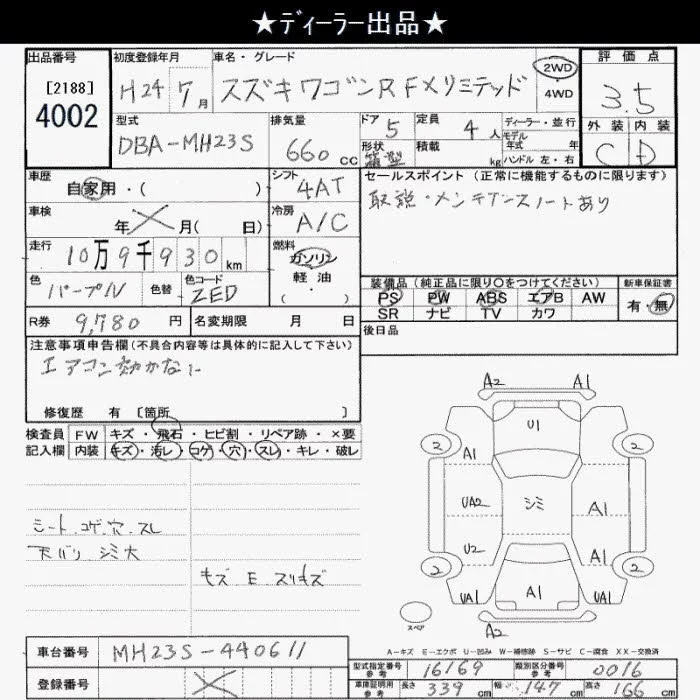 ★ディーラー出品★
出品番号 初度登録年月 車名・グレード 評価点
[2188] 4002 H24 7月 スズキワゴンR FXリミテッド 2WD 4WD 3.5
型式 排気量 ドア 定員 ディーラー・並行 外装 内装
DBA-MH23S 660cc 5 4人 モデル年式 年 C D
形状 箱型 積載 kg ハンドル 左・右
車歴 シフト セールスポイント(正常に機能するものに限ります)
自家用・( ) 4AT 取説・メンテナンスノートあり
車検 冷房
年 月( 日) A/C
走行 燃料
10万9千930km ガソリン
軽油
・( )
色 色替 色コード 装備品(純正品に限り〇をつけてください) 新車保証書
パープル ZED PS PW ABS エアB AW 有・無
SR ナビ TV カワ
R券 9,780円 名変期限 月 日 後日品
注意事項申告欄(不具合内容等は具体的に記入して下さい)
エアコン効かない
修復歴 有 [箇所 ]
検査員 FW キズ・飛石・ヒビ割・リペア跡・×要
記入欄 内装 キズ・汚レ・コゲ・穴・スレ・キレ・破レ
シート コゲ.穴.スレ
天バリ シミ大
キズ E スリキズ
A2 A1
U1
2 2
A1
UA2 シミ A1
U2 A1
2 2
UA1 A1 UA1
スペア
A2
A-キズ E-エクボ U-凹み W-補修跡 S-サビ C-腐食 XX-交換済
車台番号 MH23S-440611
登録番号
型式指定番号 参考 16169 類別区分番号 参考 0016
車庫証明用 参考 長さ 339cm 幅 147cm 高さ 166cm